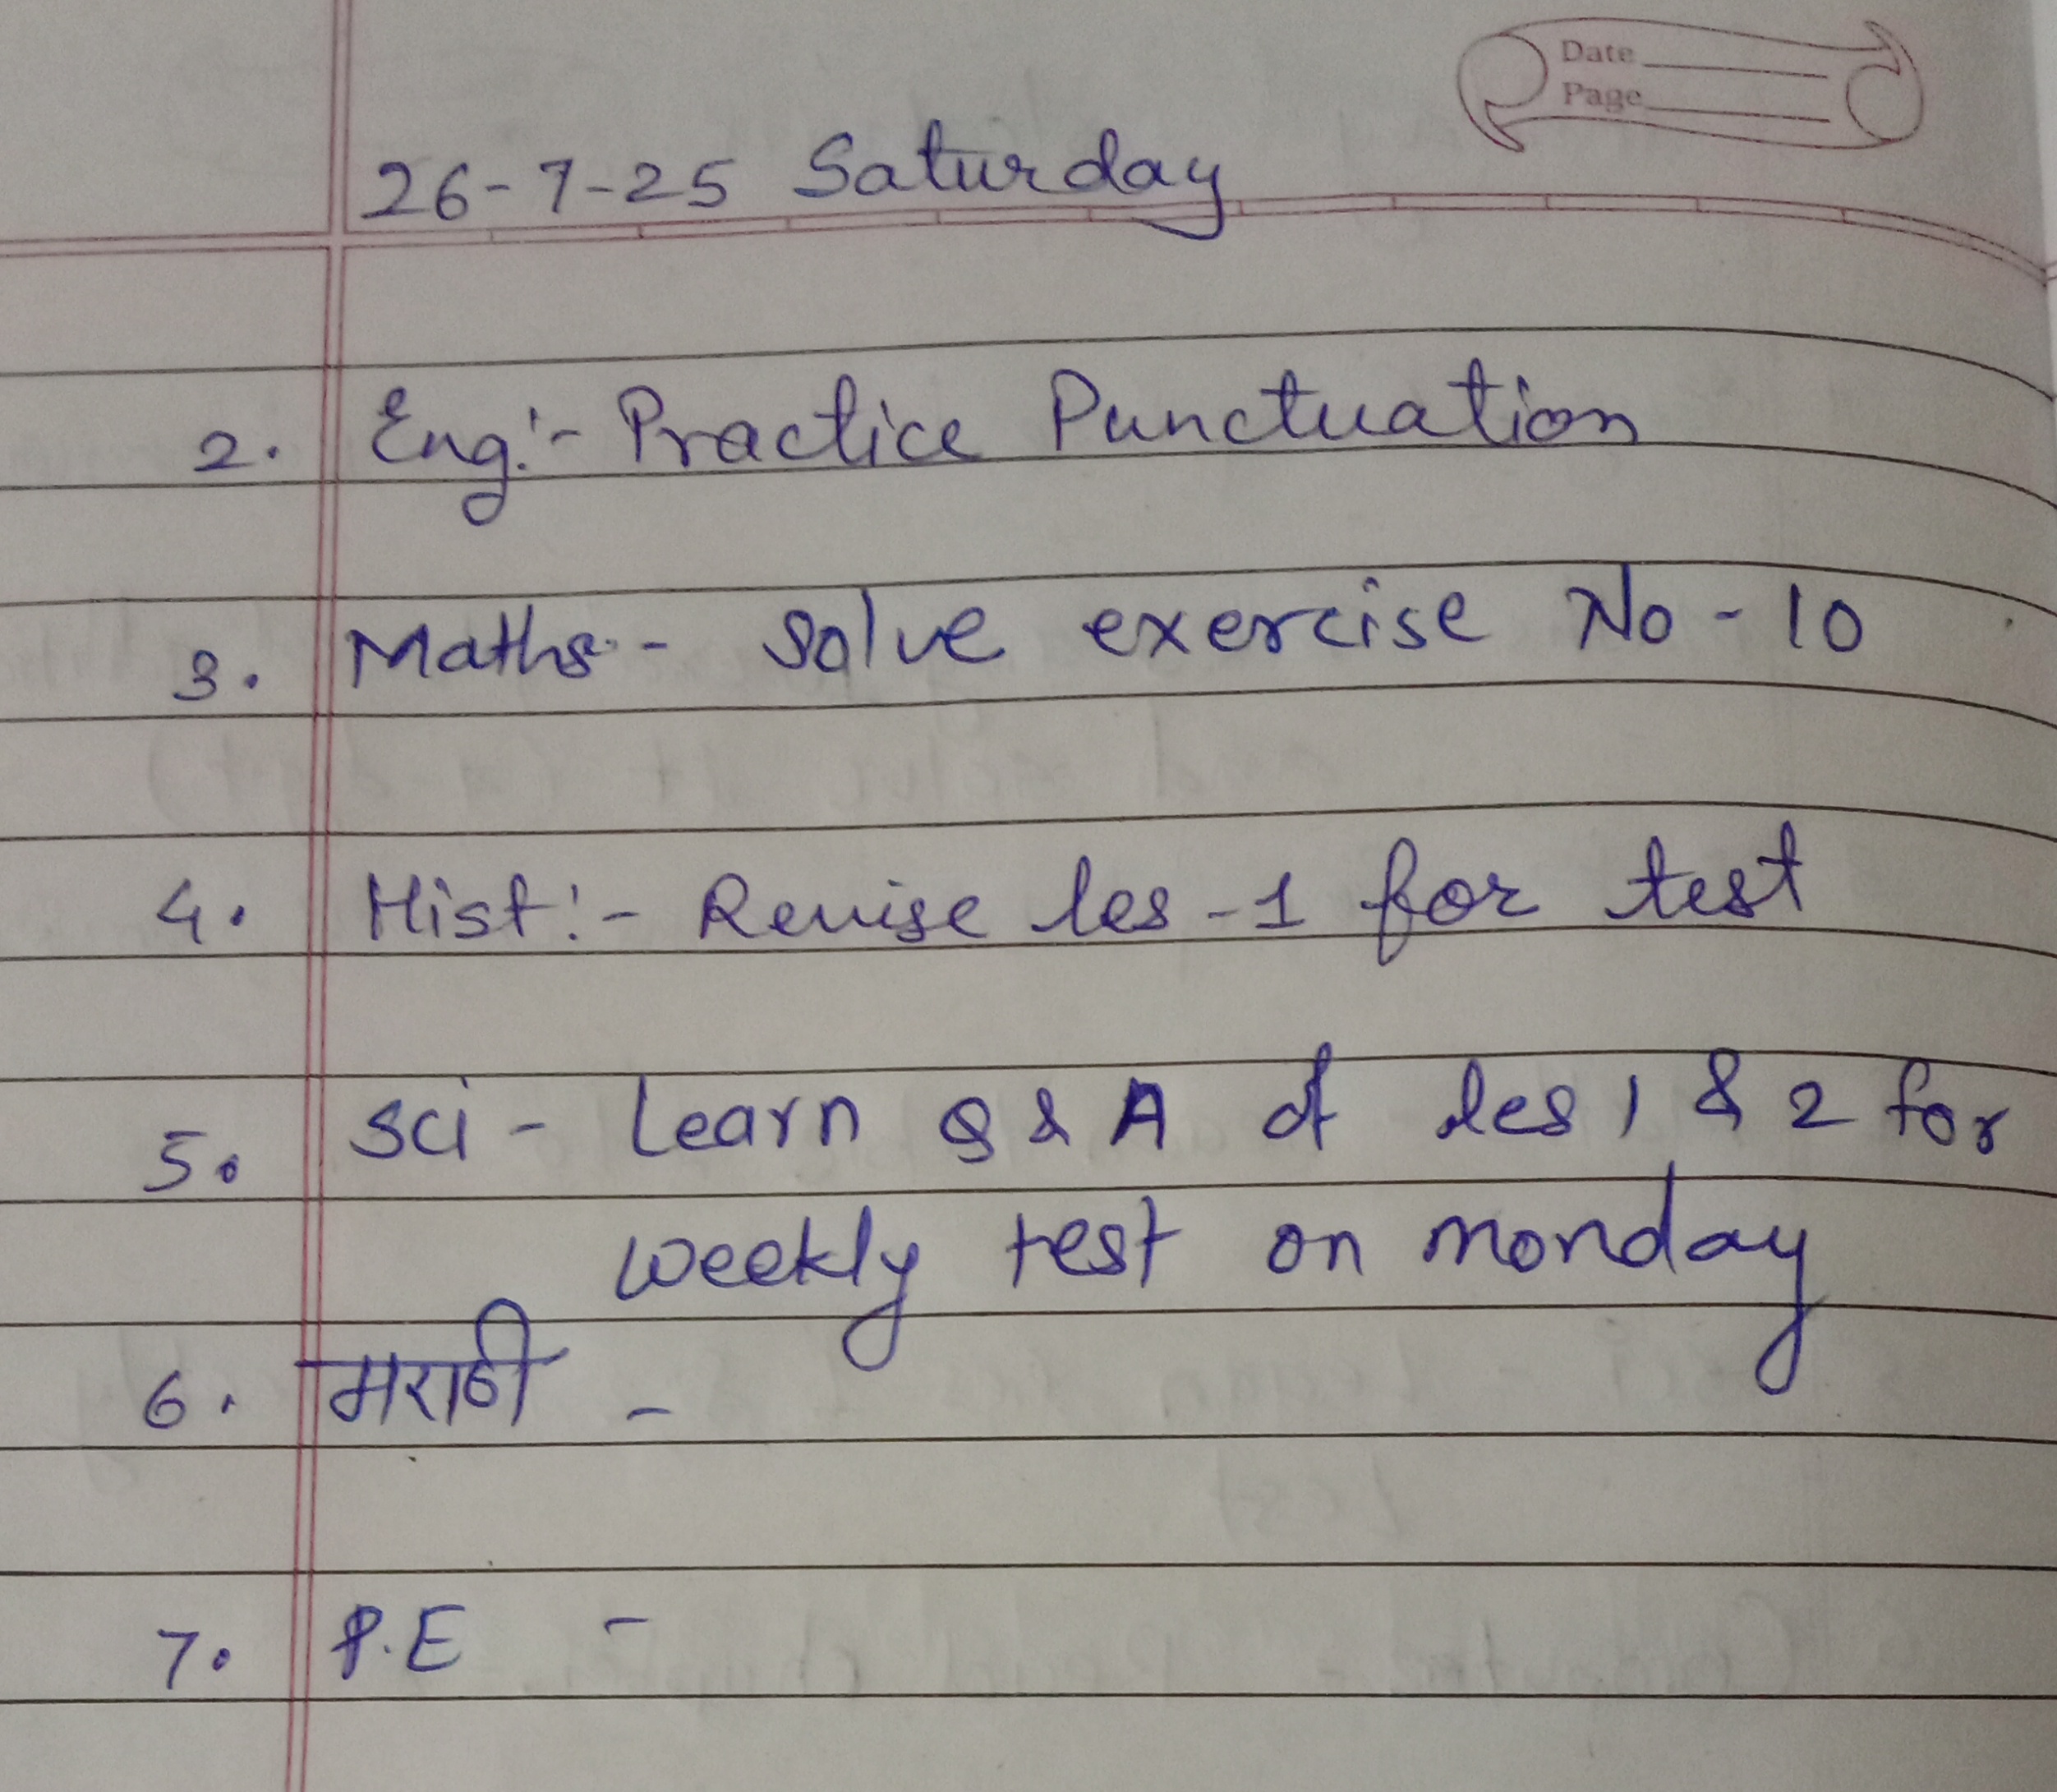 Date
Page
26-7-25 Saturday
2. Eng:- Practice Punctuation
3. Maths:- solve exercise No-10
4. Hist:- Revise les-1 for test
5. sci - Learn Q & A of les 1 & 2 for
weekly test on monday
6. मराठी -
7. P.E -